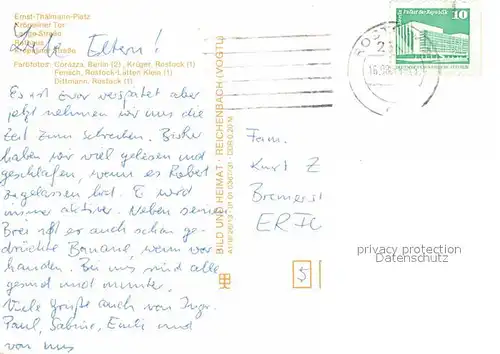 Ernst-Thälmann-Platz
Kröpeliner Tor
Lange Straße
Rathaus
Liebe Eltern!
Farbfotos: Corazza, Berlin (2), Krüger, Rostock (1)
Fensch, Rostock-Lütten Klein (1)
Dittmann, Rostock (1)
Es ist zwar verspätet aber
jetzt nehmen wir uns die
Zeit zum schreiben. Bisher
haben wir viel gelesen und
geschlafen, wenn es Robert
zugelassen hat. E wird
immer aktiver. Neben seinem
Brei ißt er auch schon ge-
drückte Banane, wenn vor
handen. Bei uns sind alle
gesund und munter.
Viele Grüße auch von Inge
Paul, Sabine, Emili und
von uns
BILD UND HEIMAT · REICHENBACH (VOGTL)
DDR 0,20 M
ROSTOCK
Palast der Republik
10
Fam.
Kurt Z
Bremerst
ERFU
5
privacy protection
Datenschutz